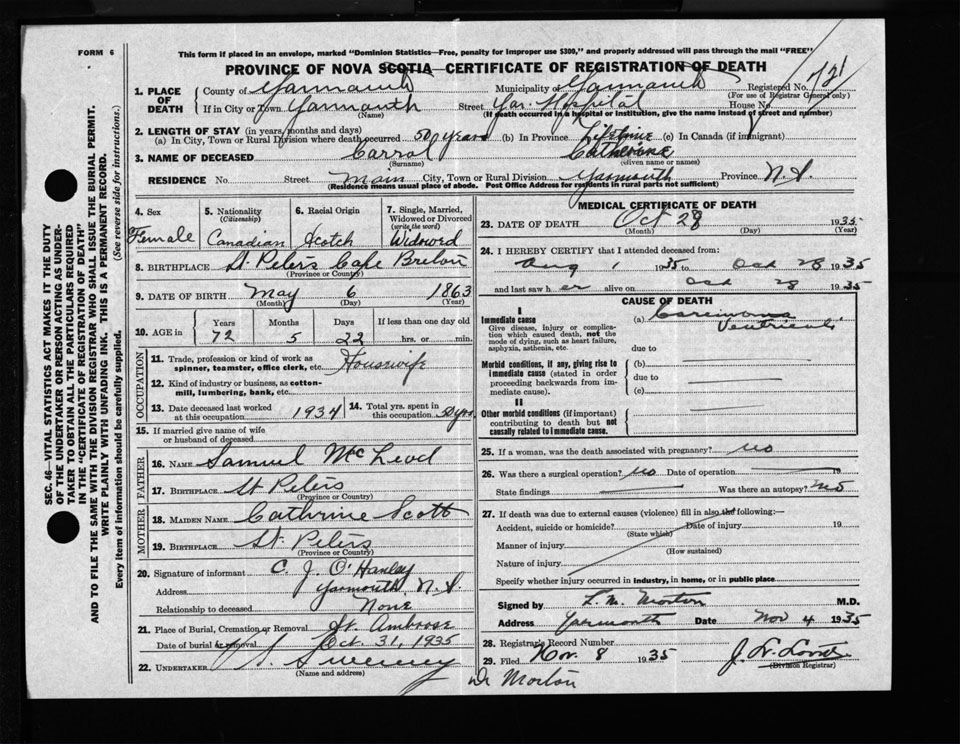 FORM 6
This form if placed in an envelope, marked "Dominion Statistics—Free, penalty for improper use $300," and properly addressed will pass through the mail "FREE"
PROVINCE OF NOVA SCOTIA—CERTIFICATE OF REGISTRATION OF DEATH
1. PLACE OF DEATH
County of Yarmouth Municipality of Yarmouth Registered No. 721
(For use of Registrar General only)
If in City or Town Yarmouth Street Yar. Hospital House No.
(Name) (If death occurred in a hospital or institution, give the name instead of street and number)
2. LENGTH OF STAY (in years, months and days)
(a) In City, Town or Rural Division where death occurred 50 years (b) In Province Lifetime (c) In Canada (if immigrant)
3. NAME OF DECEASED Carrol Catherine
(Surname) (Given name or names)
RESIDENCE No. Street Main City, Town or Rural Division Yarmouth Province N.S.
(Residence means usual place of abode. Post Office Address for residents in rural parts not sufficient)
4. Sex
Female
5. Nationality
(Citizenship)
Canadian
6. Racial Origin
Scotch
7. Single, Married, Widowed or Divorced
(write the word)
Widowed
8. BIRTHPLACE St. Peters Cape Breton
(Province or Country)
9. DATE OF BIRTH May 6 1863
(Month) (Day) (Year)
10. AGE in
Years Months Days If less than one day old
72 5 22 hrs. or min.
OCCUPATION
11. Trade, profession or kind of work as
spinner, teamster, office clerk, etc. Housewife
12. Kind of industry or business, as cotton-
mill, lumbering, bank, etc.
13. Date deceased last worked
at this occupation 1934
14. Total yrs. spent in
this occupation 50 yrs
15. If married give name of wife
or husband of deceased
FATHER
16. NAME Samuel McLeod
17. BIRTHPLACE St Peters
(Province or Country)
MOTHER
18. MAIDEN NAME Cathrine Scott
19. BIRTHPLACE St. Peters
(Province or Country)
20. Signature of informant C. J. O'Hanley
Address Yarmouth N.S
Relationship to deceased None
21. Place of Burial, Cremation or Removal St. Ambrose
Date of burial or removal Oct. 31, 1935
22. UNDERTAKER Sweeney
(Name and address)
MEDICAL CERTIFICATE OF DEATH
23. DATE OF DEATH Oct 28 1935
(Month) (Day) (Year)
24. I HEREBY CERTIFY that I attended deceased from:
Aug 1 1935 to Oct 28 1935
and last saw her alive on Oct 28 1935
CAUSE OF DEATH
I
Immediate cause
Give disease, injury or complica-
tion which caused death, not the
mode of dying, such as heart failure,
asphyxia, asthenia, etc.
(a) Carcinoma
Ventriculi
due to
Morbid conditions, if any, giving rise to
immediate cause (stated in order
proceeding backwards from im-
mediate cause).
(b)
due to
(c)
II
Other morbid conditions (if important)
contributing to death but not
causally related to immediate cause.
25. If a woman, was the death associated with pregnancy? no
26. Was there a surgical operation? no Date of operation 19
State findings Was there an autopsy? no
27. If death was due to external causes (violence) fill in also the following:—
Accident, suicide or homicide? Date of injury 19
(State which)
Manner of injury
(How sustained)
Nature of injury
Specify whether injury occurred in industry, in home, or in public place
Signed by L. M. Morton M.D.
Address Yarmouth Date Nov 4 1935
28. Registrar's Record Number
29. Filed Nov. 8 1935
(Division Registrar)
Dr Morton
SEC. 46—VITAL STATISTICS ACT MAKES IT THE DUTY
OF THE UNDERTAKER OR PERSON ACTING AS UNDER-
TAKER TO OBTAIN ALL THE PARTICULARS REQUIRED
IN THE "CERTIFICATE OF REGISTRATION OF DEATH"
AND TO FILE THE SAME WITH THE DIVISION REGISTRAR WHO SHALL ISSUE THE BURIAL PERMIT.
WRITE PLAINLY WITH UNFADING INK. THIS IS A PERMANENT RECORD.
Every item of information should be carefully supplied. (See reverse side for instructions.)